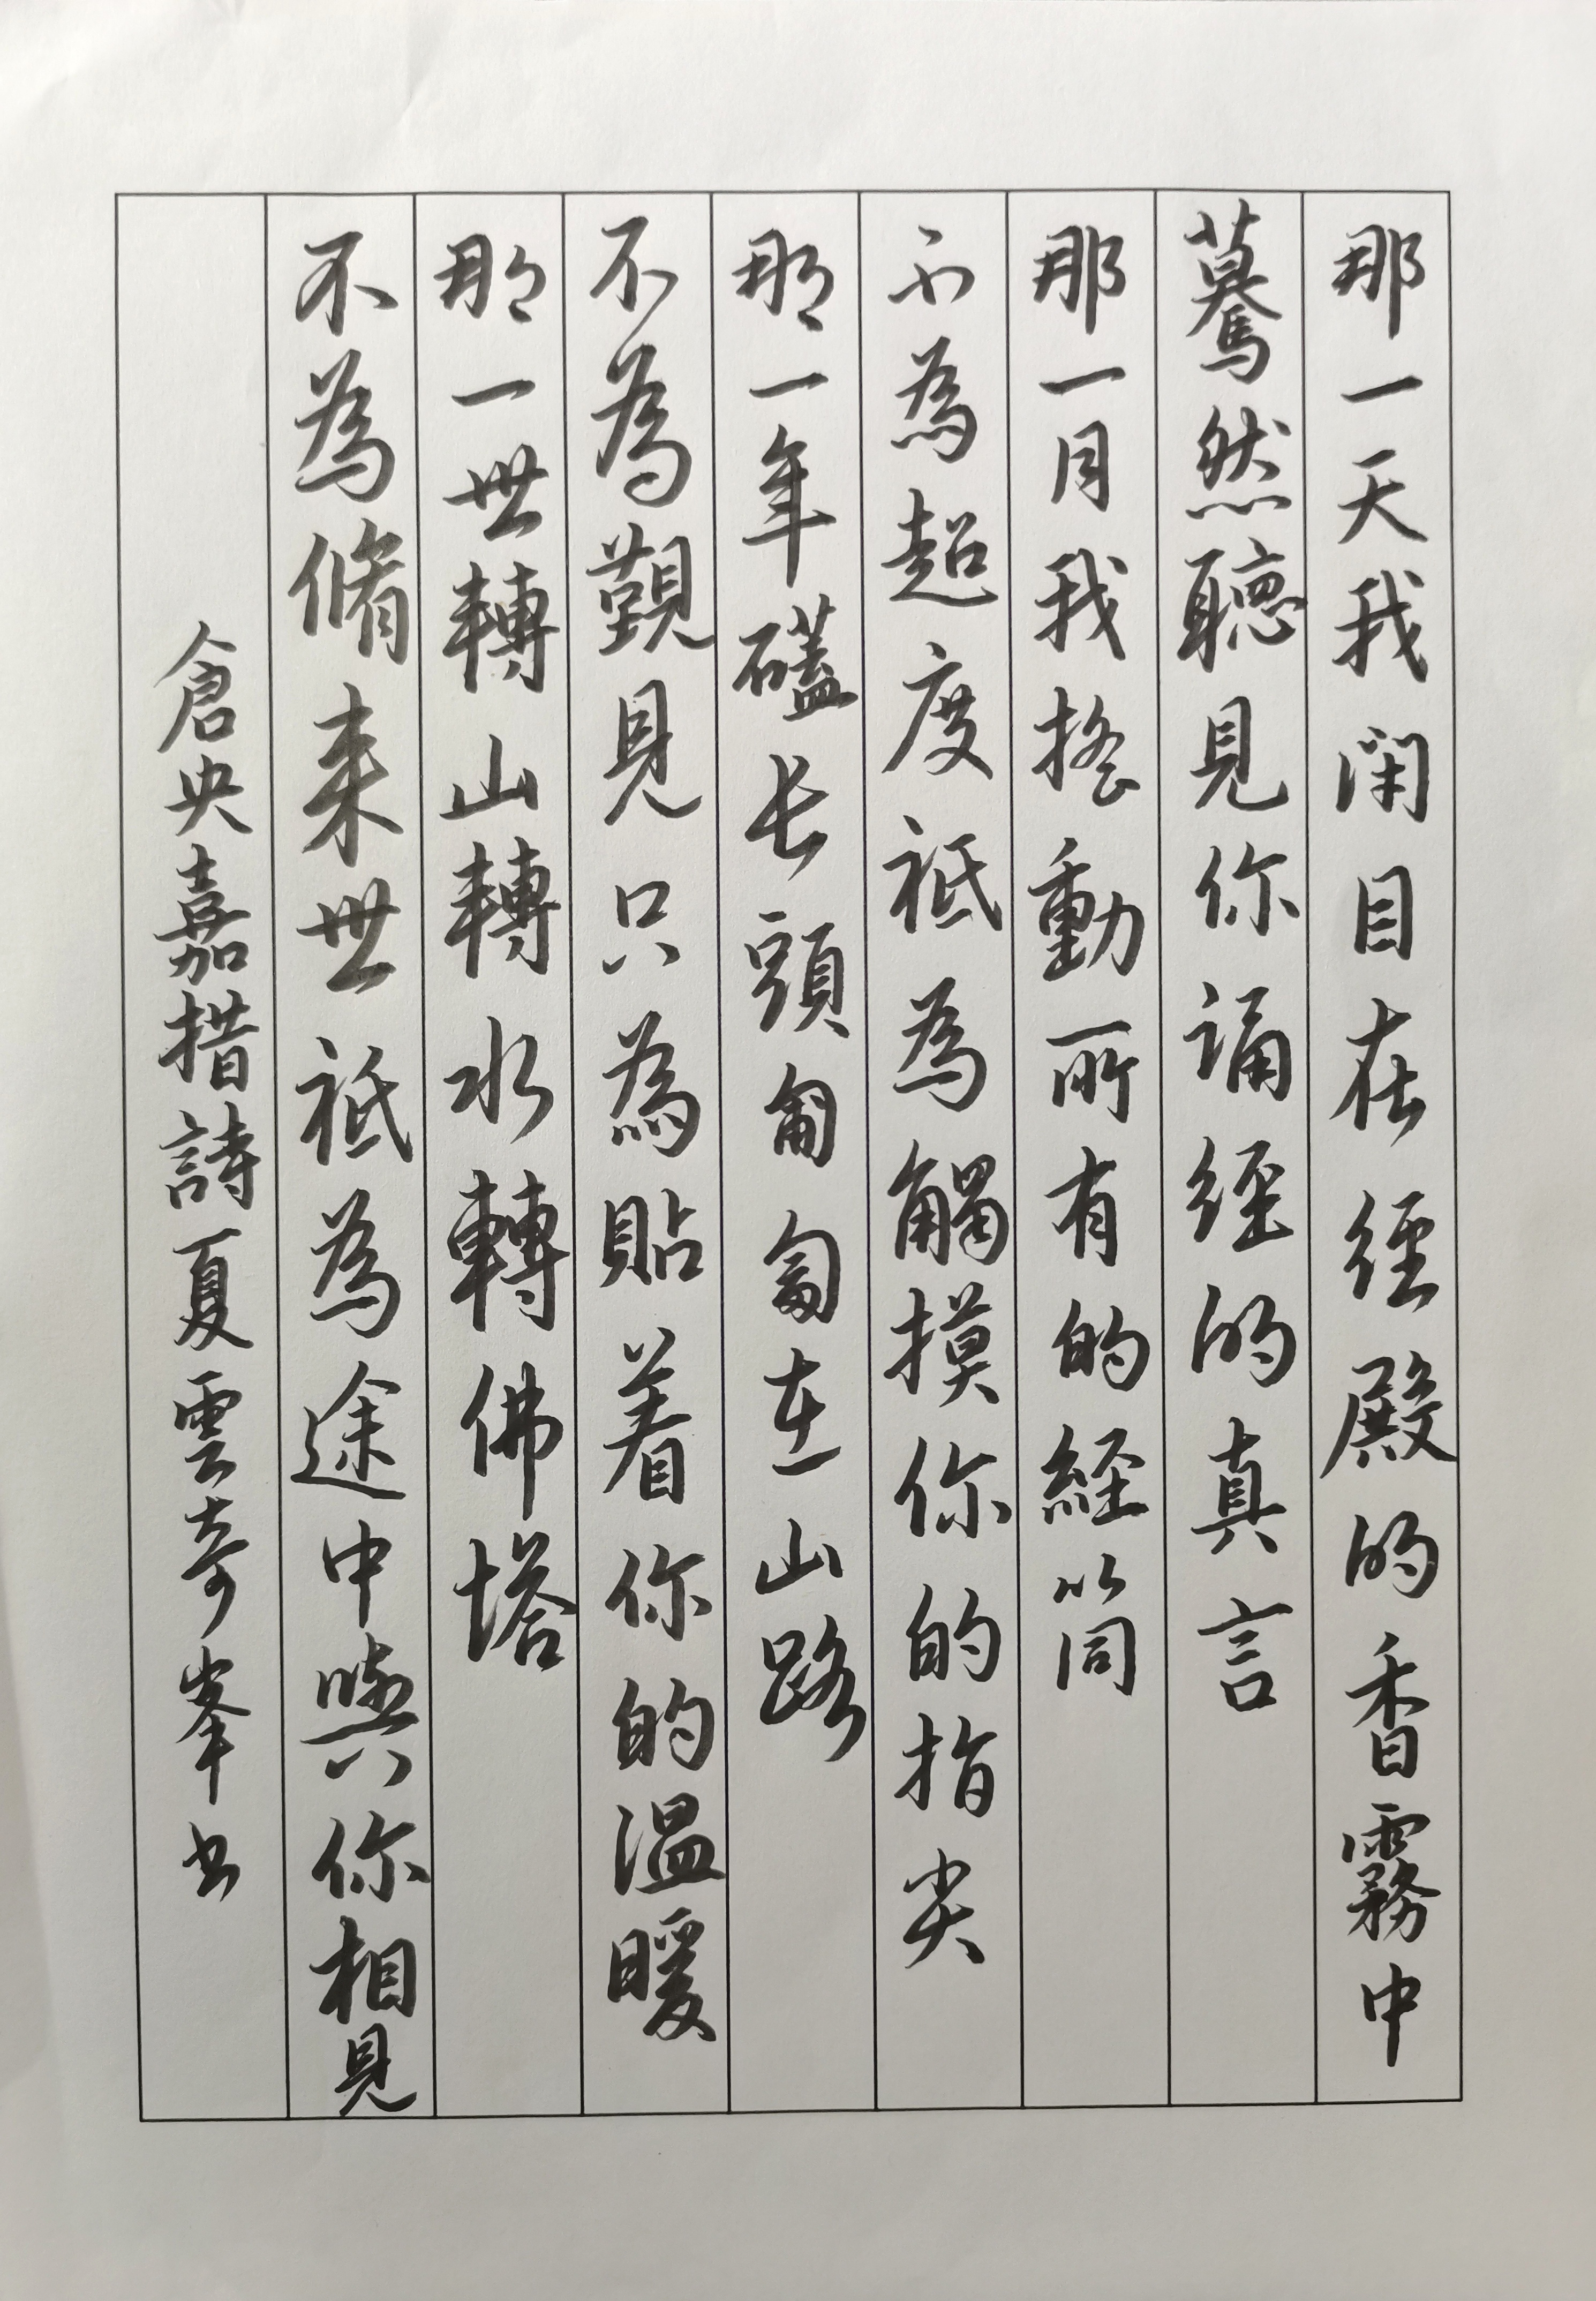 那一天我闭目在经殿的香霧中
驀然聽見你诵经的真言
那一月我搖動所有的経筒
不為超度祗為觸摸你的指尖
那一年磕长頭匍匐在山路
不為覲見只為貼着你的温暖
那一世轉山轉水轉佛塔
不為脩来世祗為途中與你相見
倉央嘉措詩夏雲奇峯书